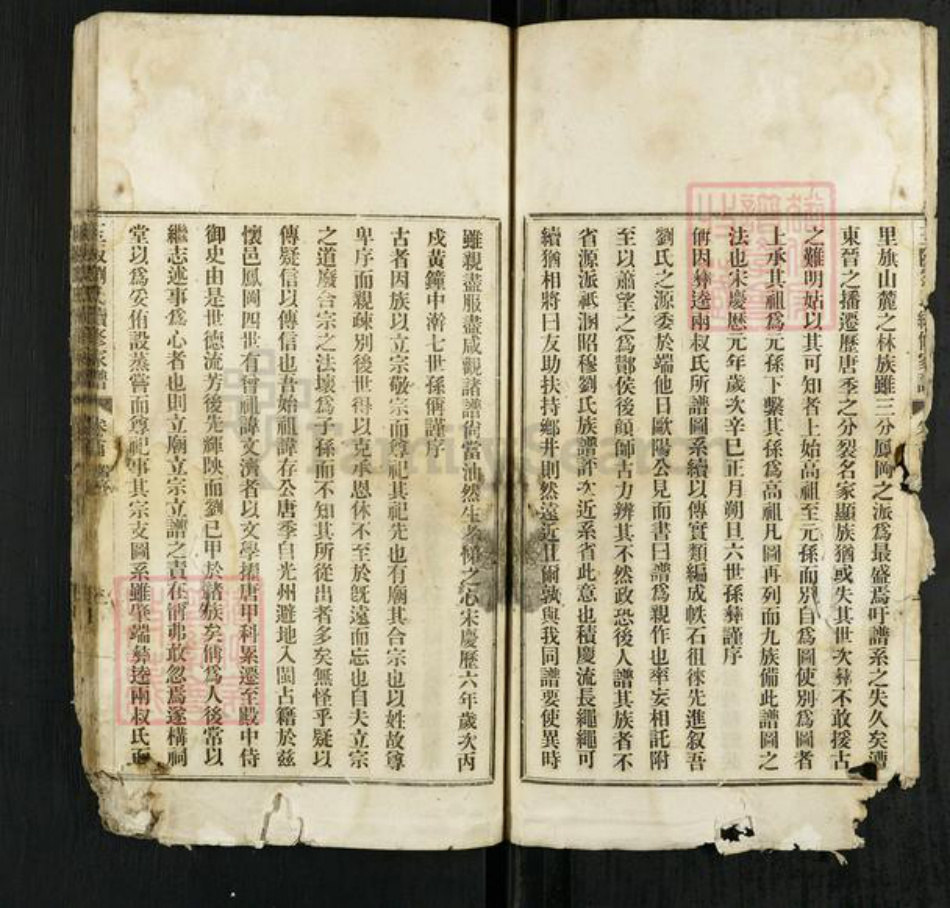 里旗山麓之林族雖三分鳳岡之派爲最盛焉吁譜系之失久矣遭
東晉之播遷歷唐季之分裂名家顯族猶或失其世次彝不敢援古
之難明姑以其可知者上始高祖至元孫而別自爲圖使別爲圖者
上承其祖爲元孫下繫其孫爲高祖凡圖再列而九族備此譜圖之
法也宋慶歷元年歲次辛巳正月朔旦六世孫彝謹序
偁因彝逵兩叔氏所譜圖系續以傳實類編成帙石徂徠先進叙吾
劉氏之源委於端他日歐陽公見而書曰譜爲親作也率妄相託附
至以蕭望之爲酇侯後顏師古力辨其不然政恐後人譜其族者不
省源派祇溷昭穆劉氏族譜詳次近系省此意也積慶流長繩繩可
續猶相將曰友助扶持鄉井則然遠近且爾敦與我同譜要使異時
雖親盡服盡咸觀諸譜尙當油然生孝悌之心宋慶歷六年歲次丙
戌黃鐘中澣七世孫偁謹序
古者因族以立宗敬宗而尊祀其祀先也有廟其合宗也以姓故尊
卑序而親疎別後世得以克承恩休不至於旣遠而忘也自夫立宗
之道廢合宗之法壞爲子孫而不知其所從出者多矣無怪乎疑以
傳疑信以傳信也吾始祖諱存公唐季自光州避地入閩占籍於茲
懷邑鳳岡四世有曾祖諱文濟者以文學擢唐甲科累遷至殿中侍
御史由是世德流芳後先輝映而劉已甲於諸族矣偁爲人後常以
繼志述事爲心者也則立廟立宗立譜之責在偁弗敢忽焉遂構祠
堂以爲妥侑設蒸嘗而尊祀事其宗支圖系雖肇端彝逵兩叔氏而